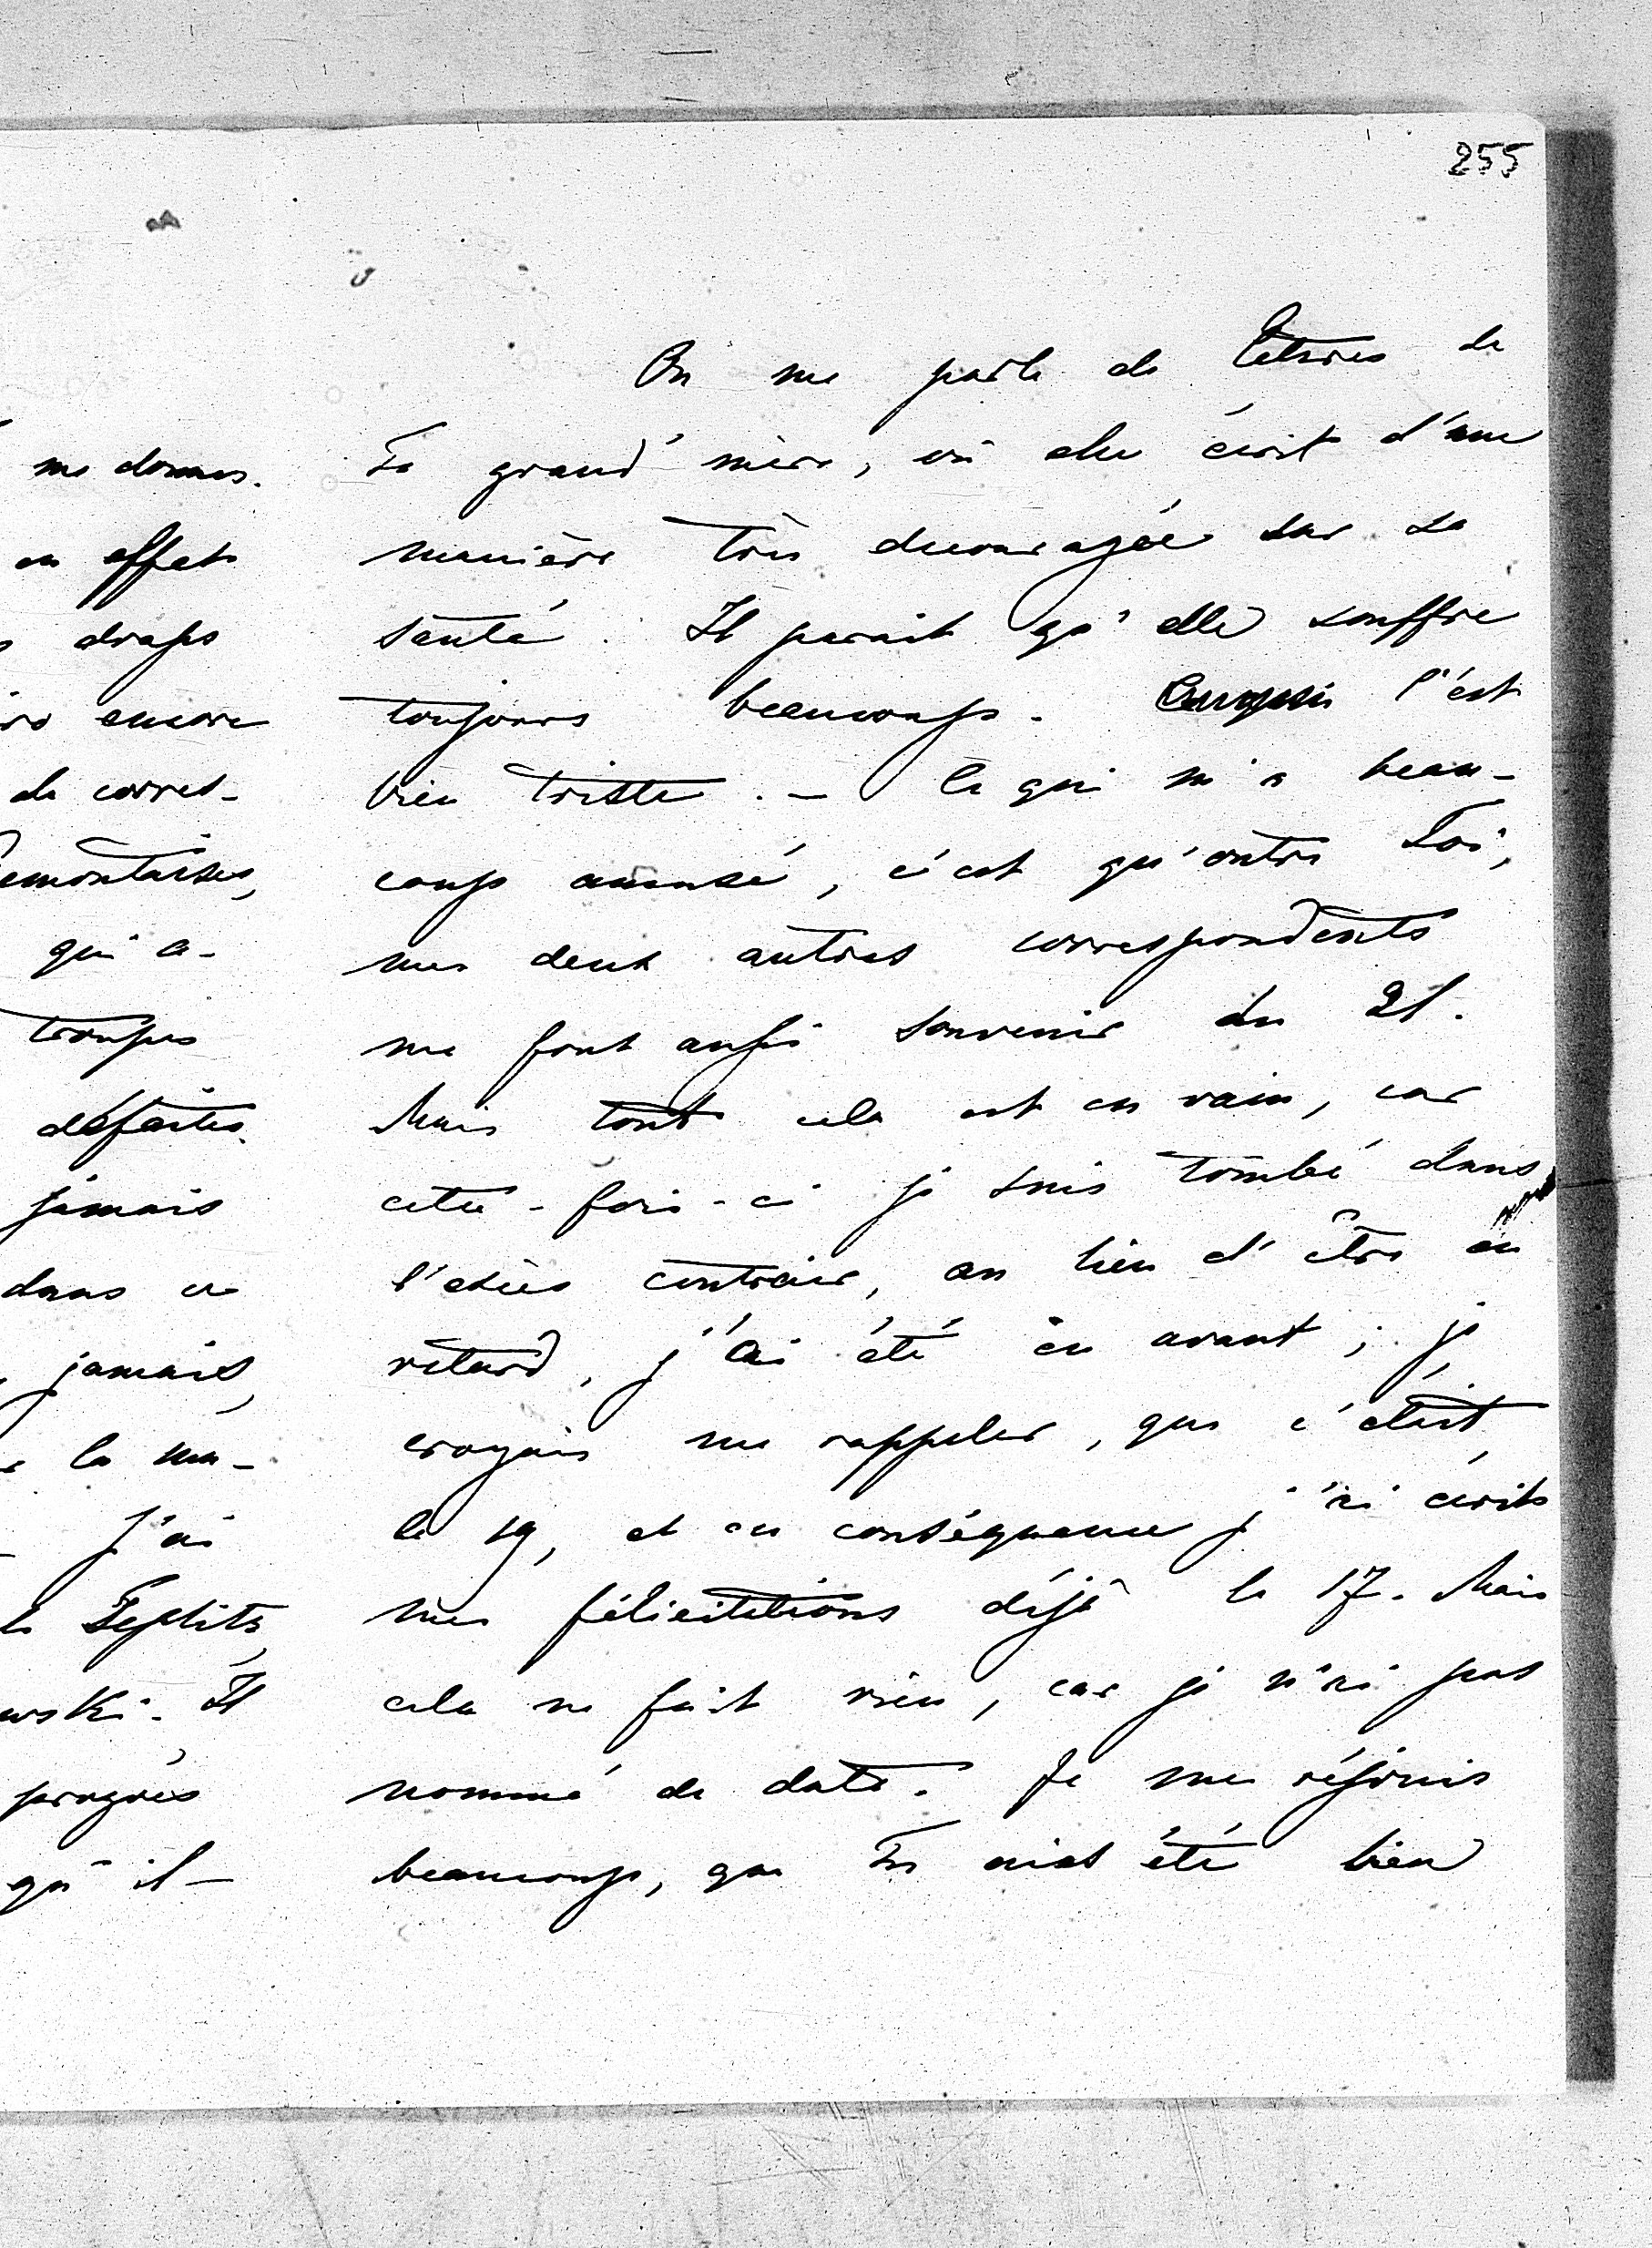 255
me donnes.
en effet
draps
encore
de corres-
qui a-
troupes
défaites.
jamais
dans ce
jamais,
la ma-
J'ai
de Teplitz,
Il
progrès
qu'il
On me parle de lettres de
Ta grand'mère, où elle écrit d'une
manière très decouragée sur sa
santé. Il parait qu'elle souffre
toujours beaucoup. l'est
bien triste. - Ce qui m'a beau-
coup amusé, c'est qu'outre Toi,
mes deux autres correspondents
me font aussi souvenir du 21.
Mais tout cela est en vain, car
cette-fois-ci je suis tombé dans
l'excès contraire, au lieu d'être en
retard, j'ai été en avant; je
croyais me rappeler, que c'était
le 19, et en conséquence j'ai écrit
mes félicitations déjà le 17. Mais
cela ne fait rien, car je n'ai pas
nommé de date. Je me réjouis
beaucoup, que Tu aies été bien